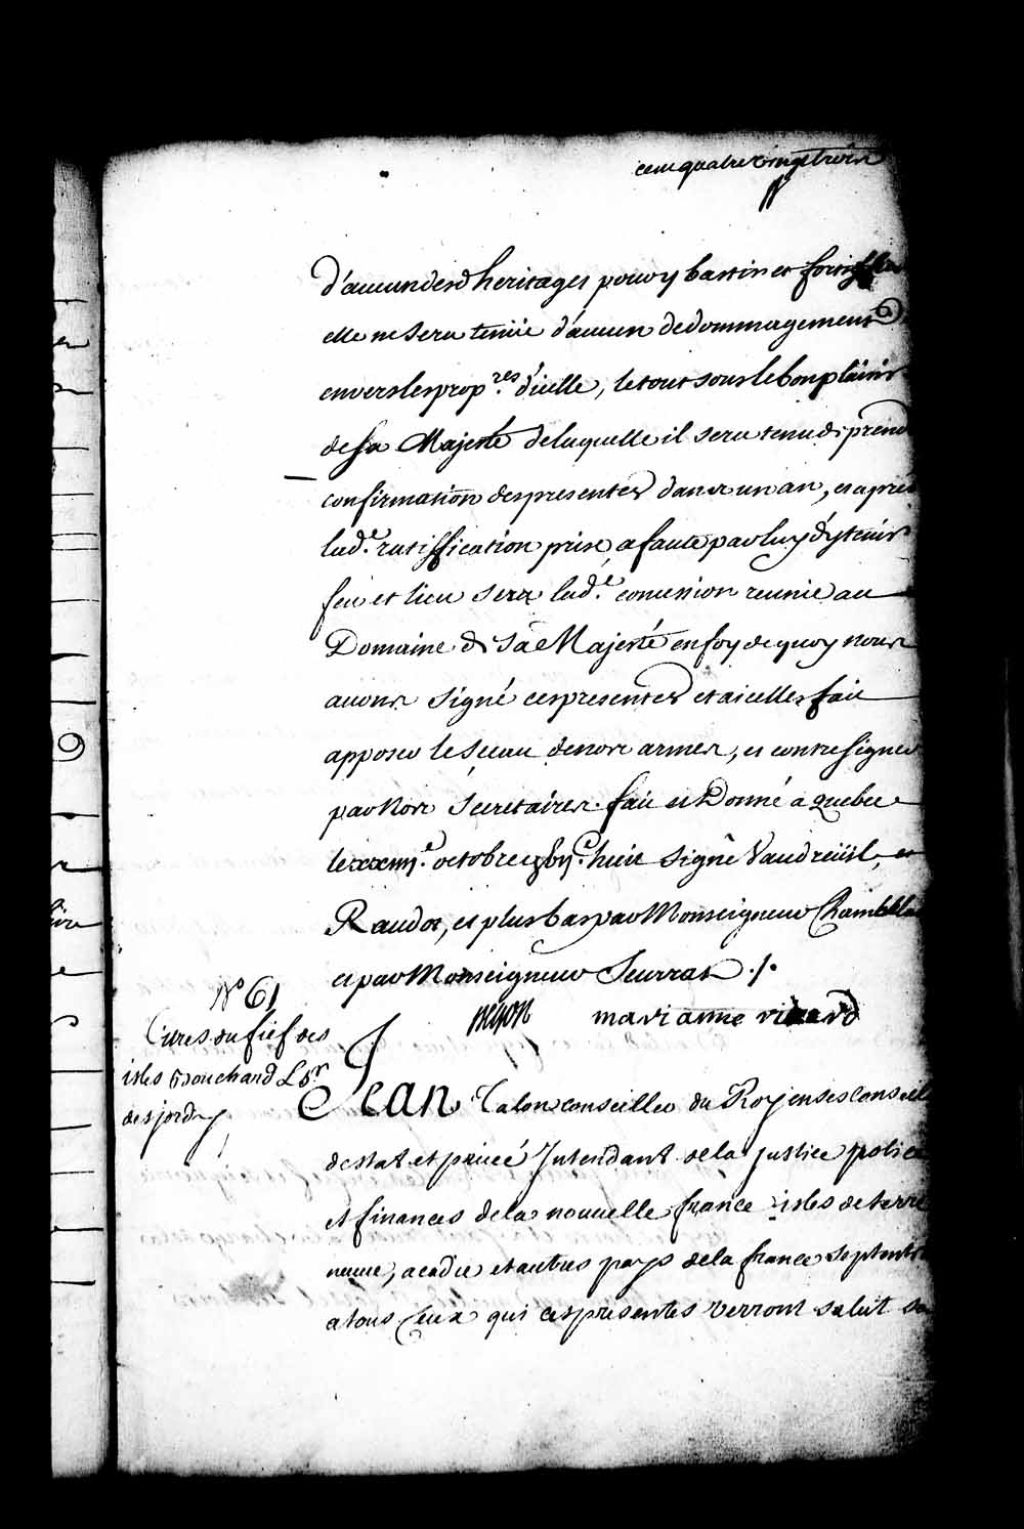 cent quatre vingt trois
d'aucun desd heritages pour y bastir et fortifier
elle ne sera tenüe d'aucun dedommagement
envers les prop.res d'icelle, le tout sous le bon plaisir
de sa Majesté de laquelle il sera tenu de prend
confirmation des presentes dans un an, et aprés
lad.e ratiffication prise a faute par luy d'y tenir
feu et lieu sera lad.e concession reunie au
Domaine de sa Majesté en foy de quoy nous
avons signé ces presentes et a icelles fait
apposer le sceau de nos armes, et contresigner
par nos secretaires. fait et Donné a quebec
le xxiiij.e octobre
huit signé Vaudreüil, et
Raudot, et plus bas par Monseigneur
et par Monseigneur Seurrat ./.
marianne
N.o 61
Titres du fief des
isles Bouchard L S.r
desjordy
Jean Talon conseiller du Roy en ses conseils
destat et privé Intendant de la justice police
et finances de la nouvelle france isles de terre
neuve, acadie et autres pays de la france septentr
a tous ceux qui ces presentes verront salut